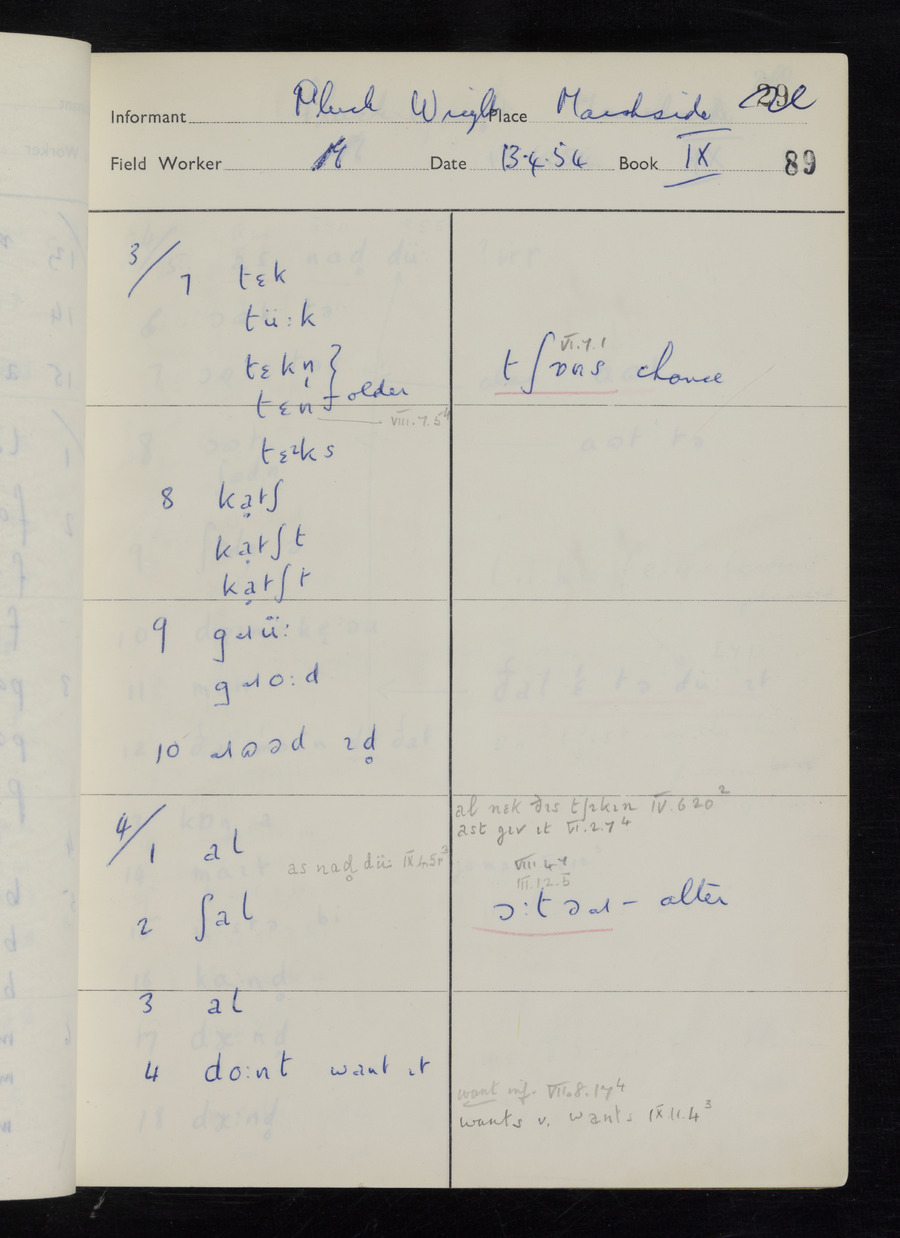 Informant Wright Place Marshside
Field Worker Date 13.4.54 Book IX 89
3/7 tɛk
tü:k
tɛkn̩ }
tɛn } older
VIII.7.5⁴
tɛɪks
8 ka̤tʃ
ka̤tʃt
ka̤tʃt
9 gɹü:
gɹo:d
10 ɹɷəd ɪd̥
VI.7.1
tʃɒns chance
4/1 al
as nad̥ dü: IX.4.5
2 ʃal
3 al
4 do:nt want ɪt
al nɛk ðɪs tʃɪkɪn IV.6 20²
ast gɪv ɪt VI.2.7⁴
VIII 4
III.12.5
ɔ:təɹ – alter
want inf. VII.8.17⁴
wants v. wants IX.11.4³